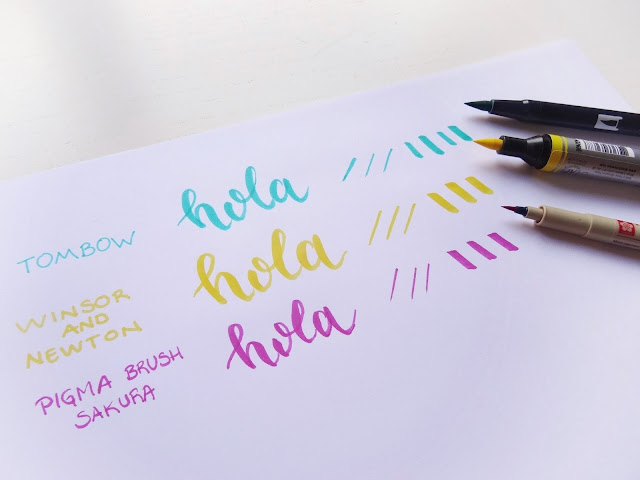 TOMBOW hola
WINSOR
AND
NEWTON
hola
PIGMA BRUSH
SAKURA
hola